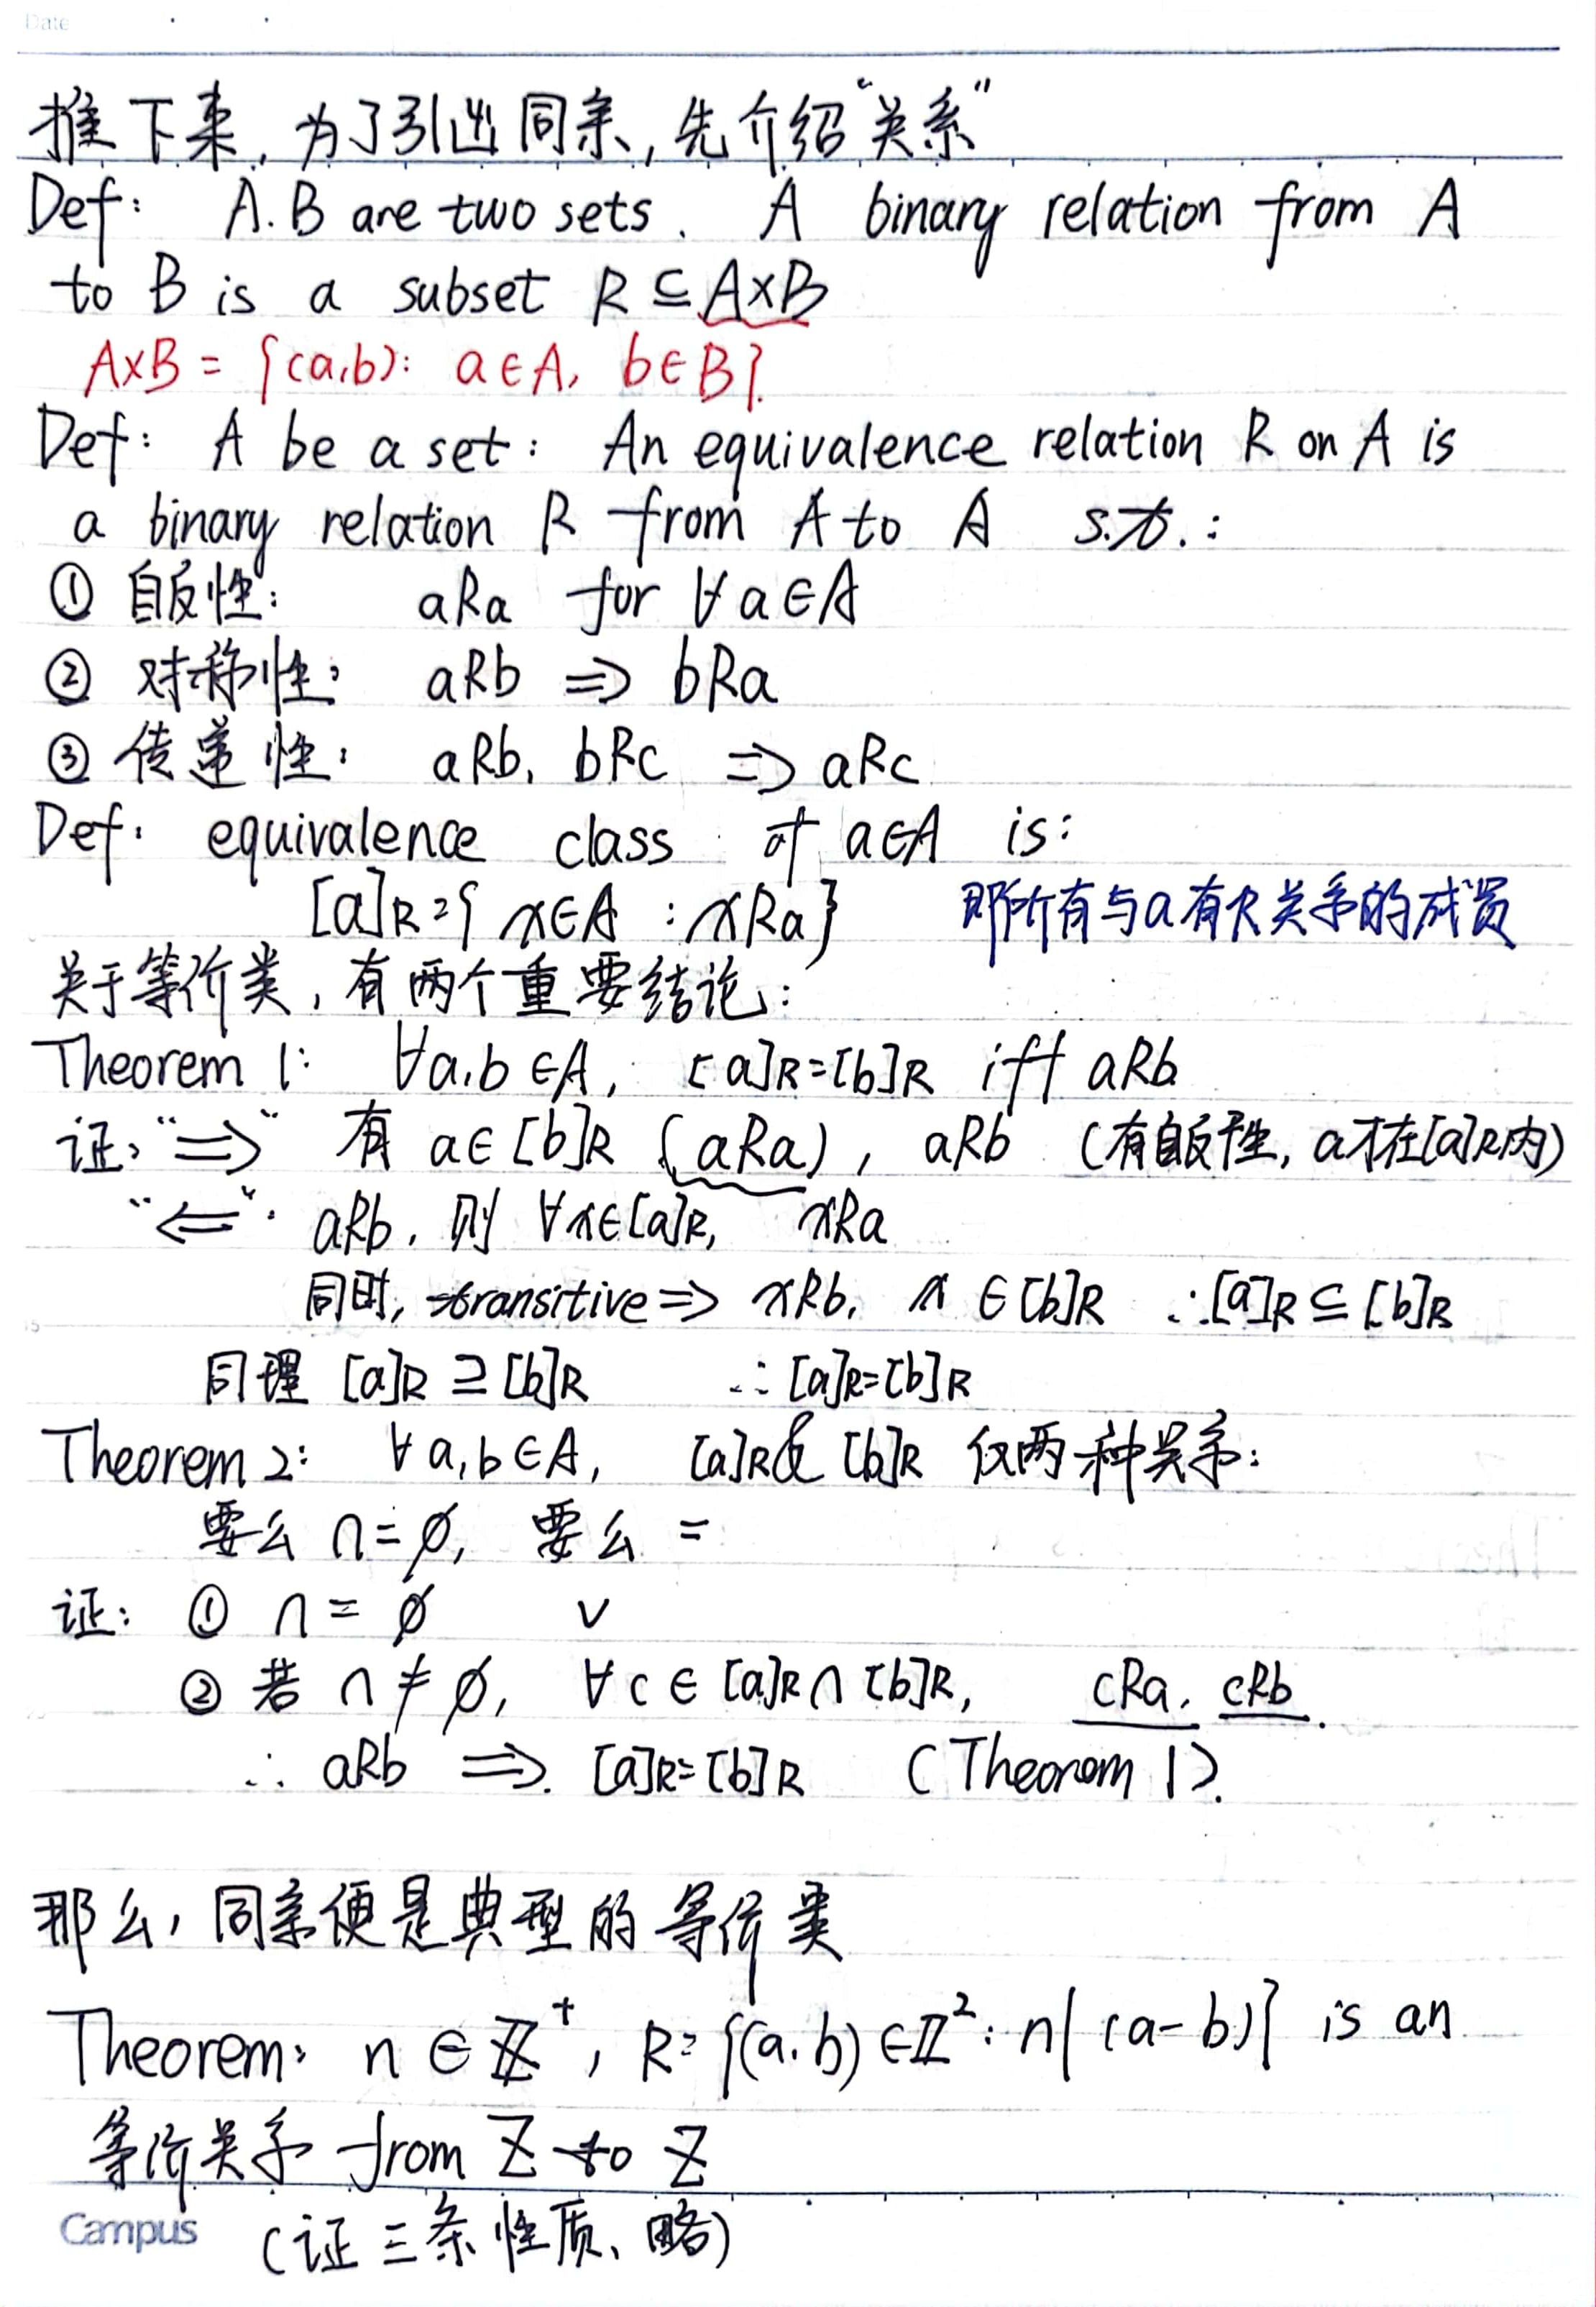 Date
接下来，为了引出同余，先介绍“关系”
Def: A.B are two sets. A binary relation from A
to B is a subset R ⊆ A×B
A×B = {(a,b): a∈A, b∈B}.
Def: A be a set: An equivalence relation R on A is
a binary relation R from A to A s.t.:
① 自反性: aRa for ∀a∈A
② 对称性: aRb ⇒ bRa
③ 传递性: aRb, bRc ⇒ aRc
Def: equivalence class of a∈A is:
[a]R={ x∈A : xRa} 即所有与a有R关系的成员
关于等价类，有两个重要结论:
Theorem 1: ∀a,b∈A, [a]R=[b]R iff aRb
证: “⇒” 有 a∈[b]R (aRa), aRb (有自反性, a才在[a]R内)
“⇐”. aRb, 则 ∀x∈[a]R, xRa
同时, transitive ⇒ xRb, x∈[b]R ∴[a]R ⊆ [b]R
同理 [a]R ⊇ [b]R ∴[a]R=[b]R
Theorem 2: ∀a,b∈A, [a]R & [b]R 仅两种关系:
要么 ∩=∅, 要么 =
证: ① ∩=∅ ✓
② 若 ∩≠∅, ∀c∈[a]R∩[b]R, cRa, cRb.
∴ aRb ⇒ [a]R=[b]R (Theorem 1).
那么, 同余便是典型的等价类
Theorem: n∈ℤ⁺, R={(a,b)∈ℤ²: n|(a-b)} is an
等价关系 from Z to Z
(证三条性质、略)
Campus